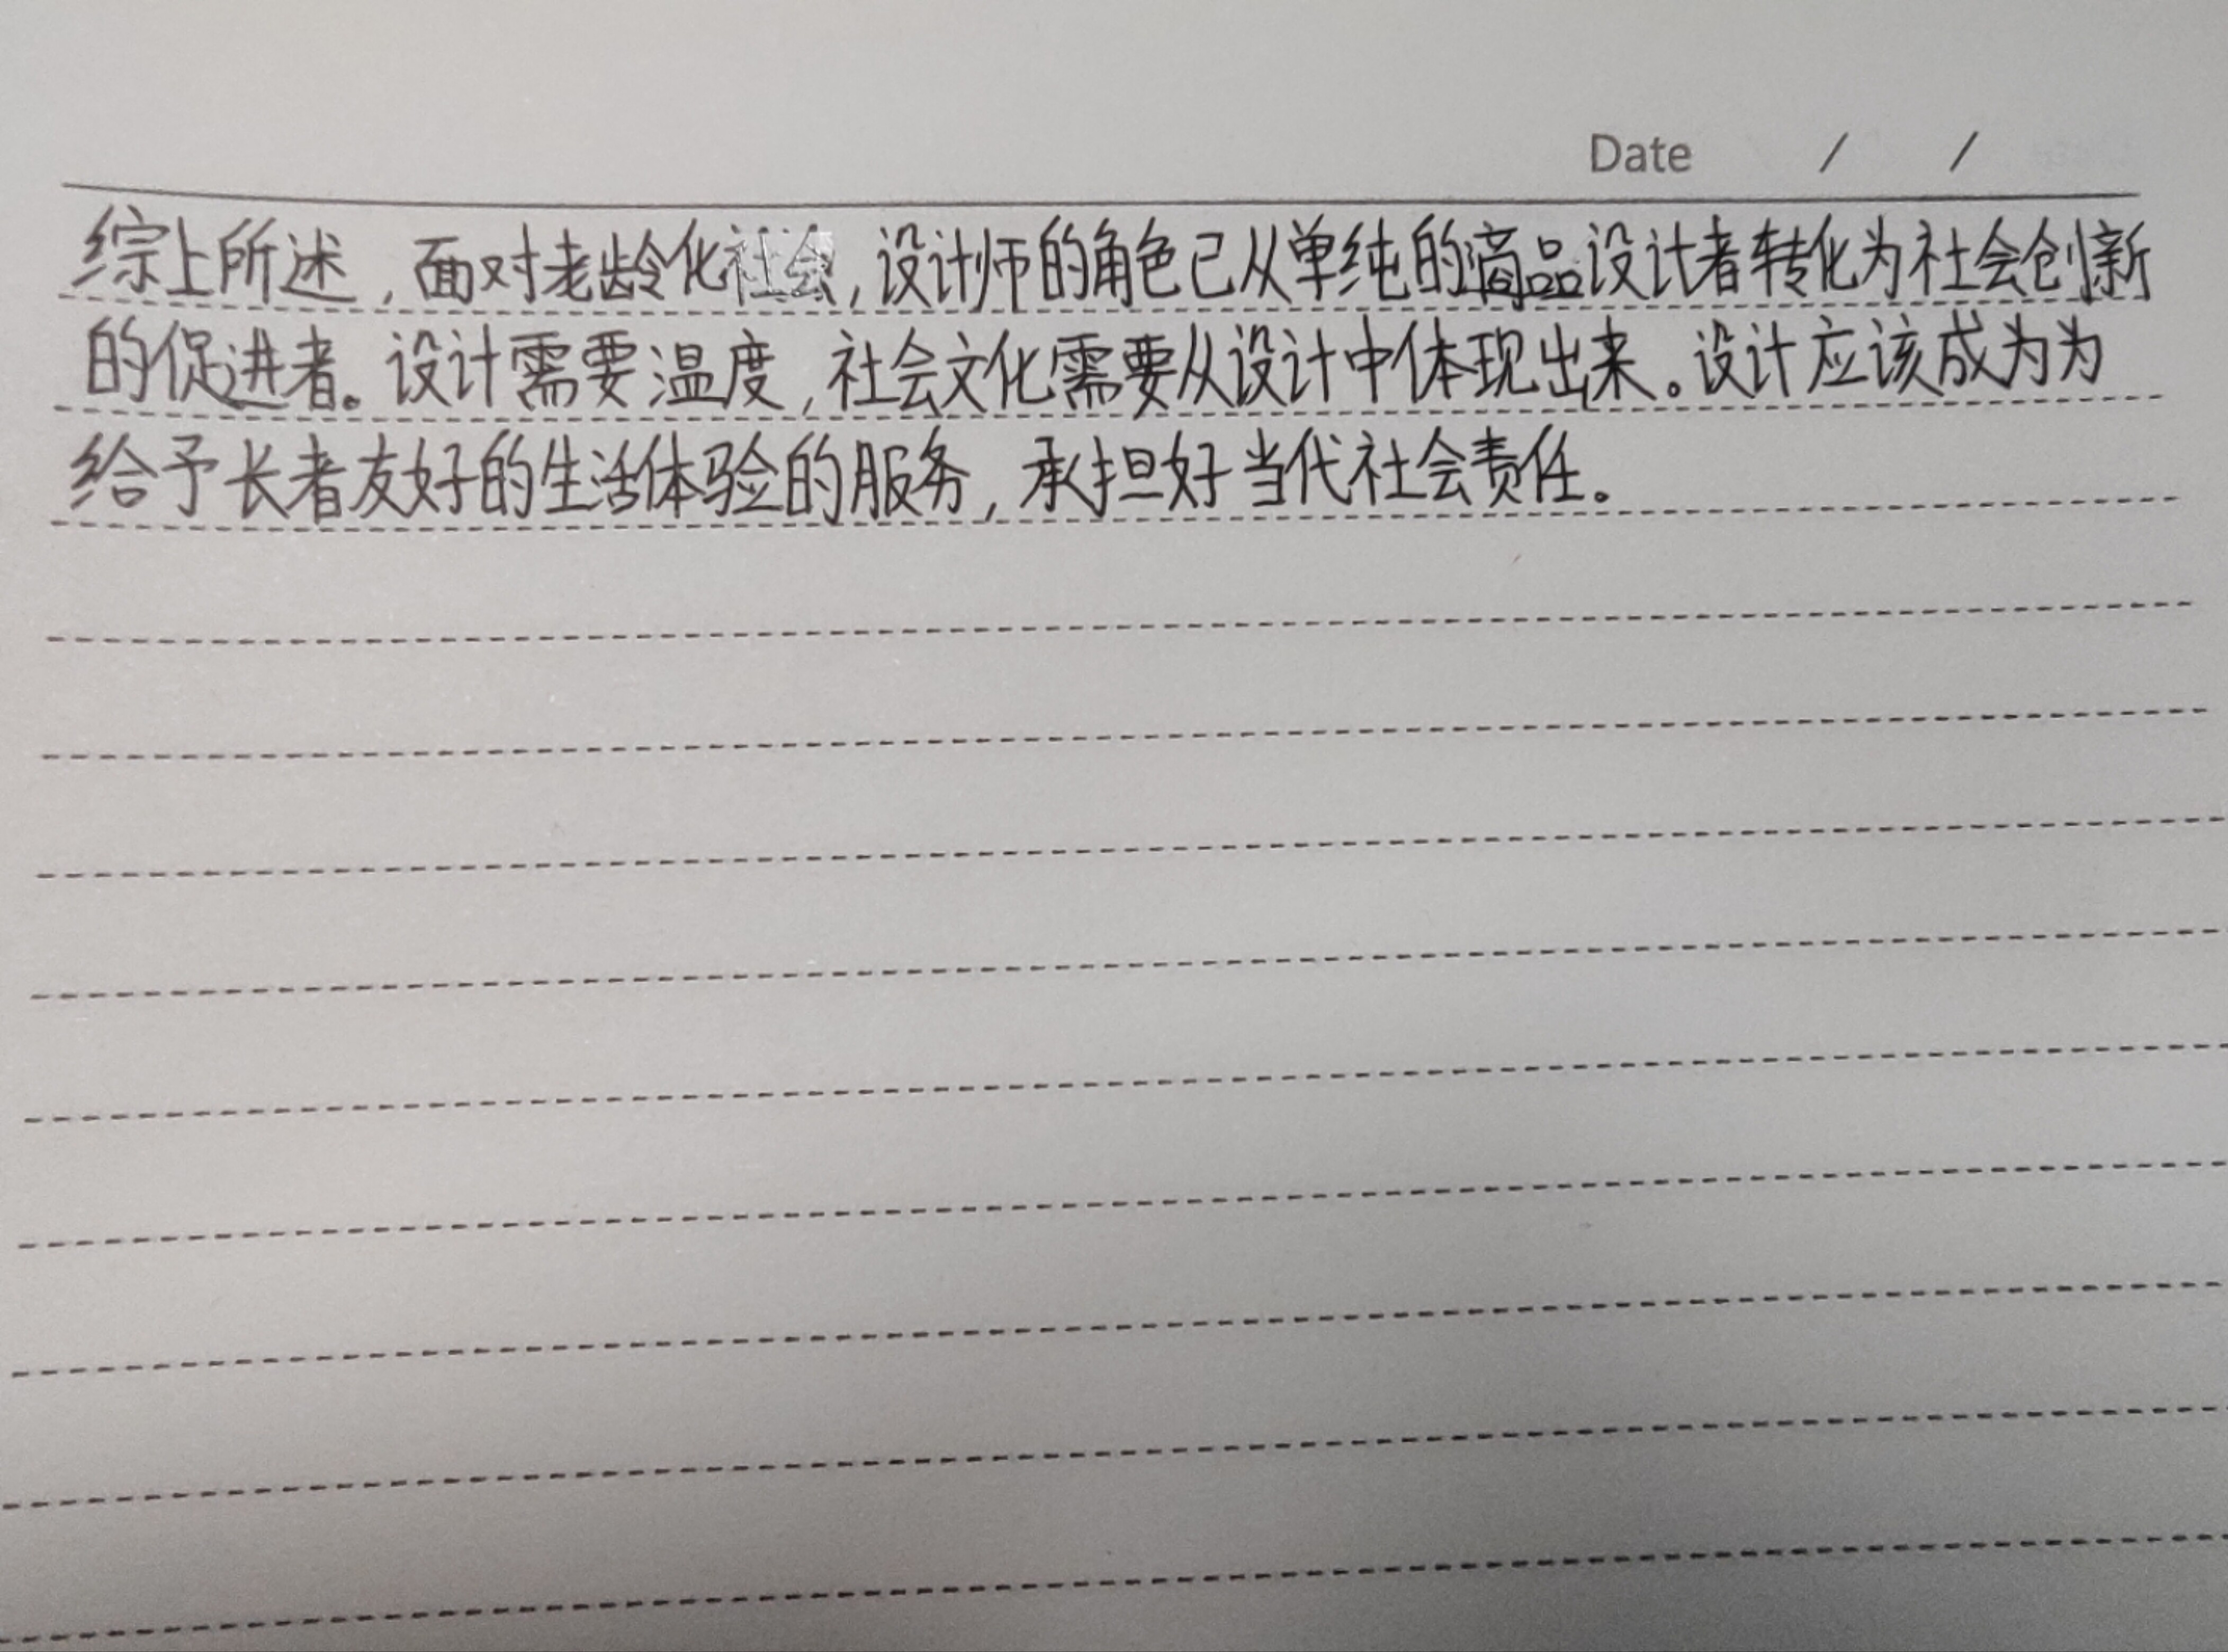 Date / /
综上所述,面对老龄化社会,设计师的角色已从单纯的商品设计者转化为社会创新
的促进者。设计需要温度,社会文化需要从设计中体现出来。设计应该成为为
给予长者友好的生活体验的服务,承担好当代社会责任。